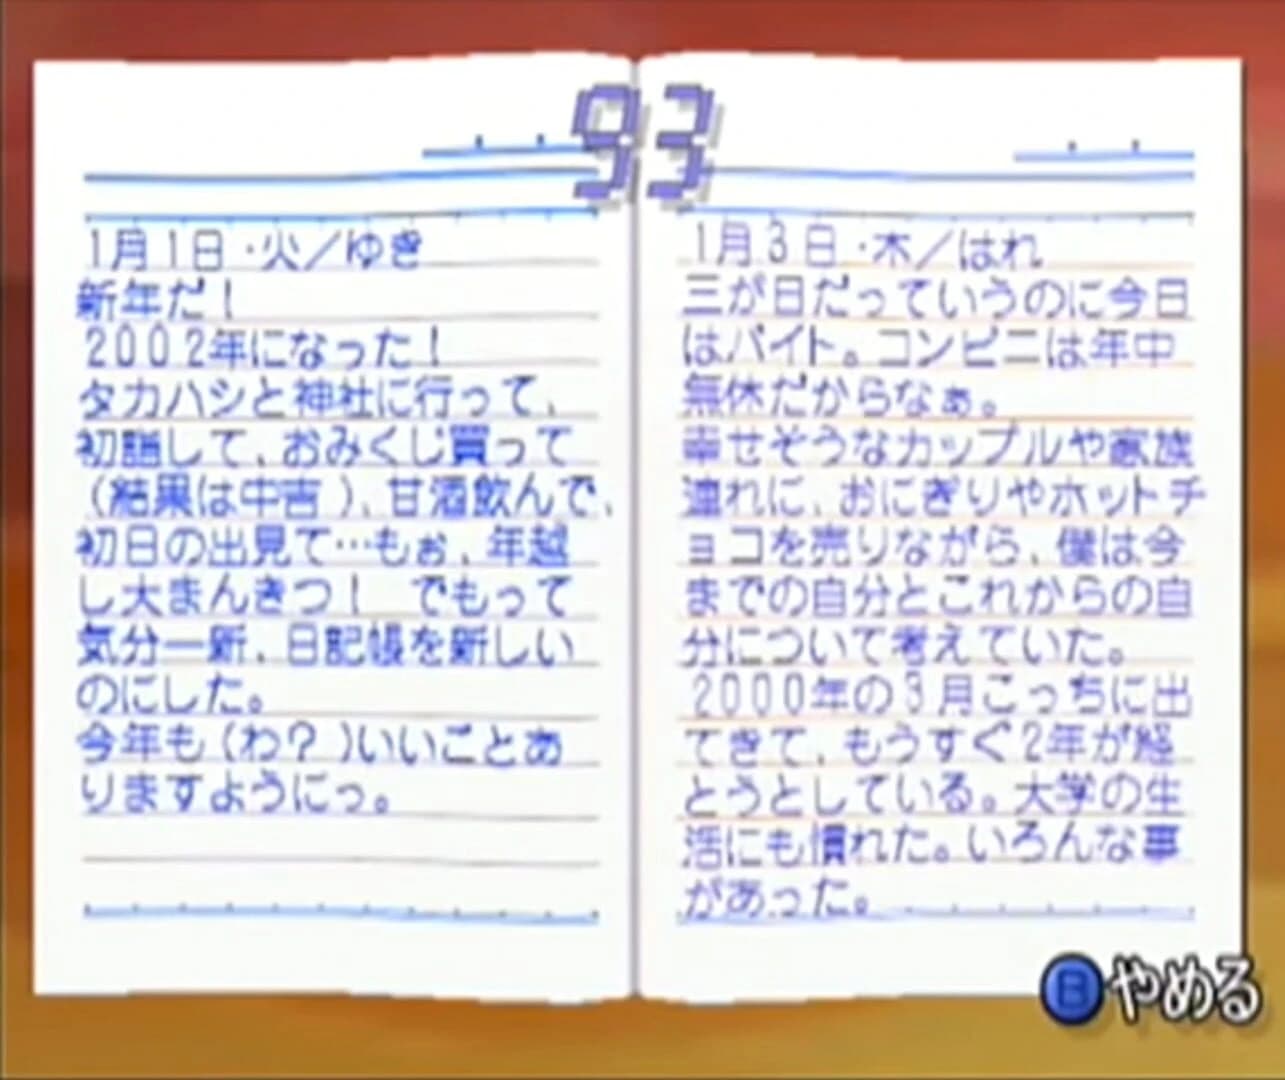 93
1月1日・火／ゆき
新年だ！
2002年になった！
タカハシと神社に行って、
初詣して、おみくじ買って
（結果は中吉）、甘酒飲んで、
初日の出見て…もぉ、年越
し大まんきつ！　でもって
気分一新、日記帳を新しい
のにした。
今年も（わ？）いいことあ
りますようにっ。
1月3日・木／はれ
三が日だっていうのに今日
はバイト。コンビニは年中
無休だからなぁ。
幸せそうなカップルや家族
連れに、おにぎりやホットチ
ョコを売りながら、僕は今
までの自分とこれからの自
分について考えていた。
2000年の3月こっちに出
てきて、もうすぐ2年が経
とうとしている。大学の生
活にも慣れた。いろんな事
があった。
Bやめる